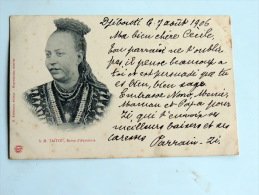 Djibouti le 7 août 1906
Ma bien chère Cécile,
Ton parrain ne t'oublie
pas, il pense beaucoup à
toi et est persuadé que tu
es bien, bien sage
Embrasse Nono, Mémé,
Maman et Papa pour
Zi qui t'envoie ses
meilleurs baisers et ses
caresses
Parrain-Zi.
S. M. "TAÏTOU", Reine d'Abyssinie